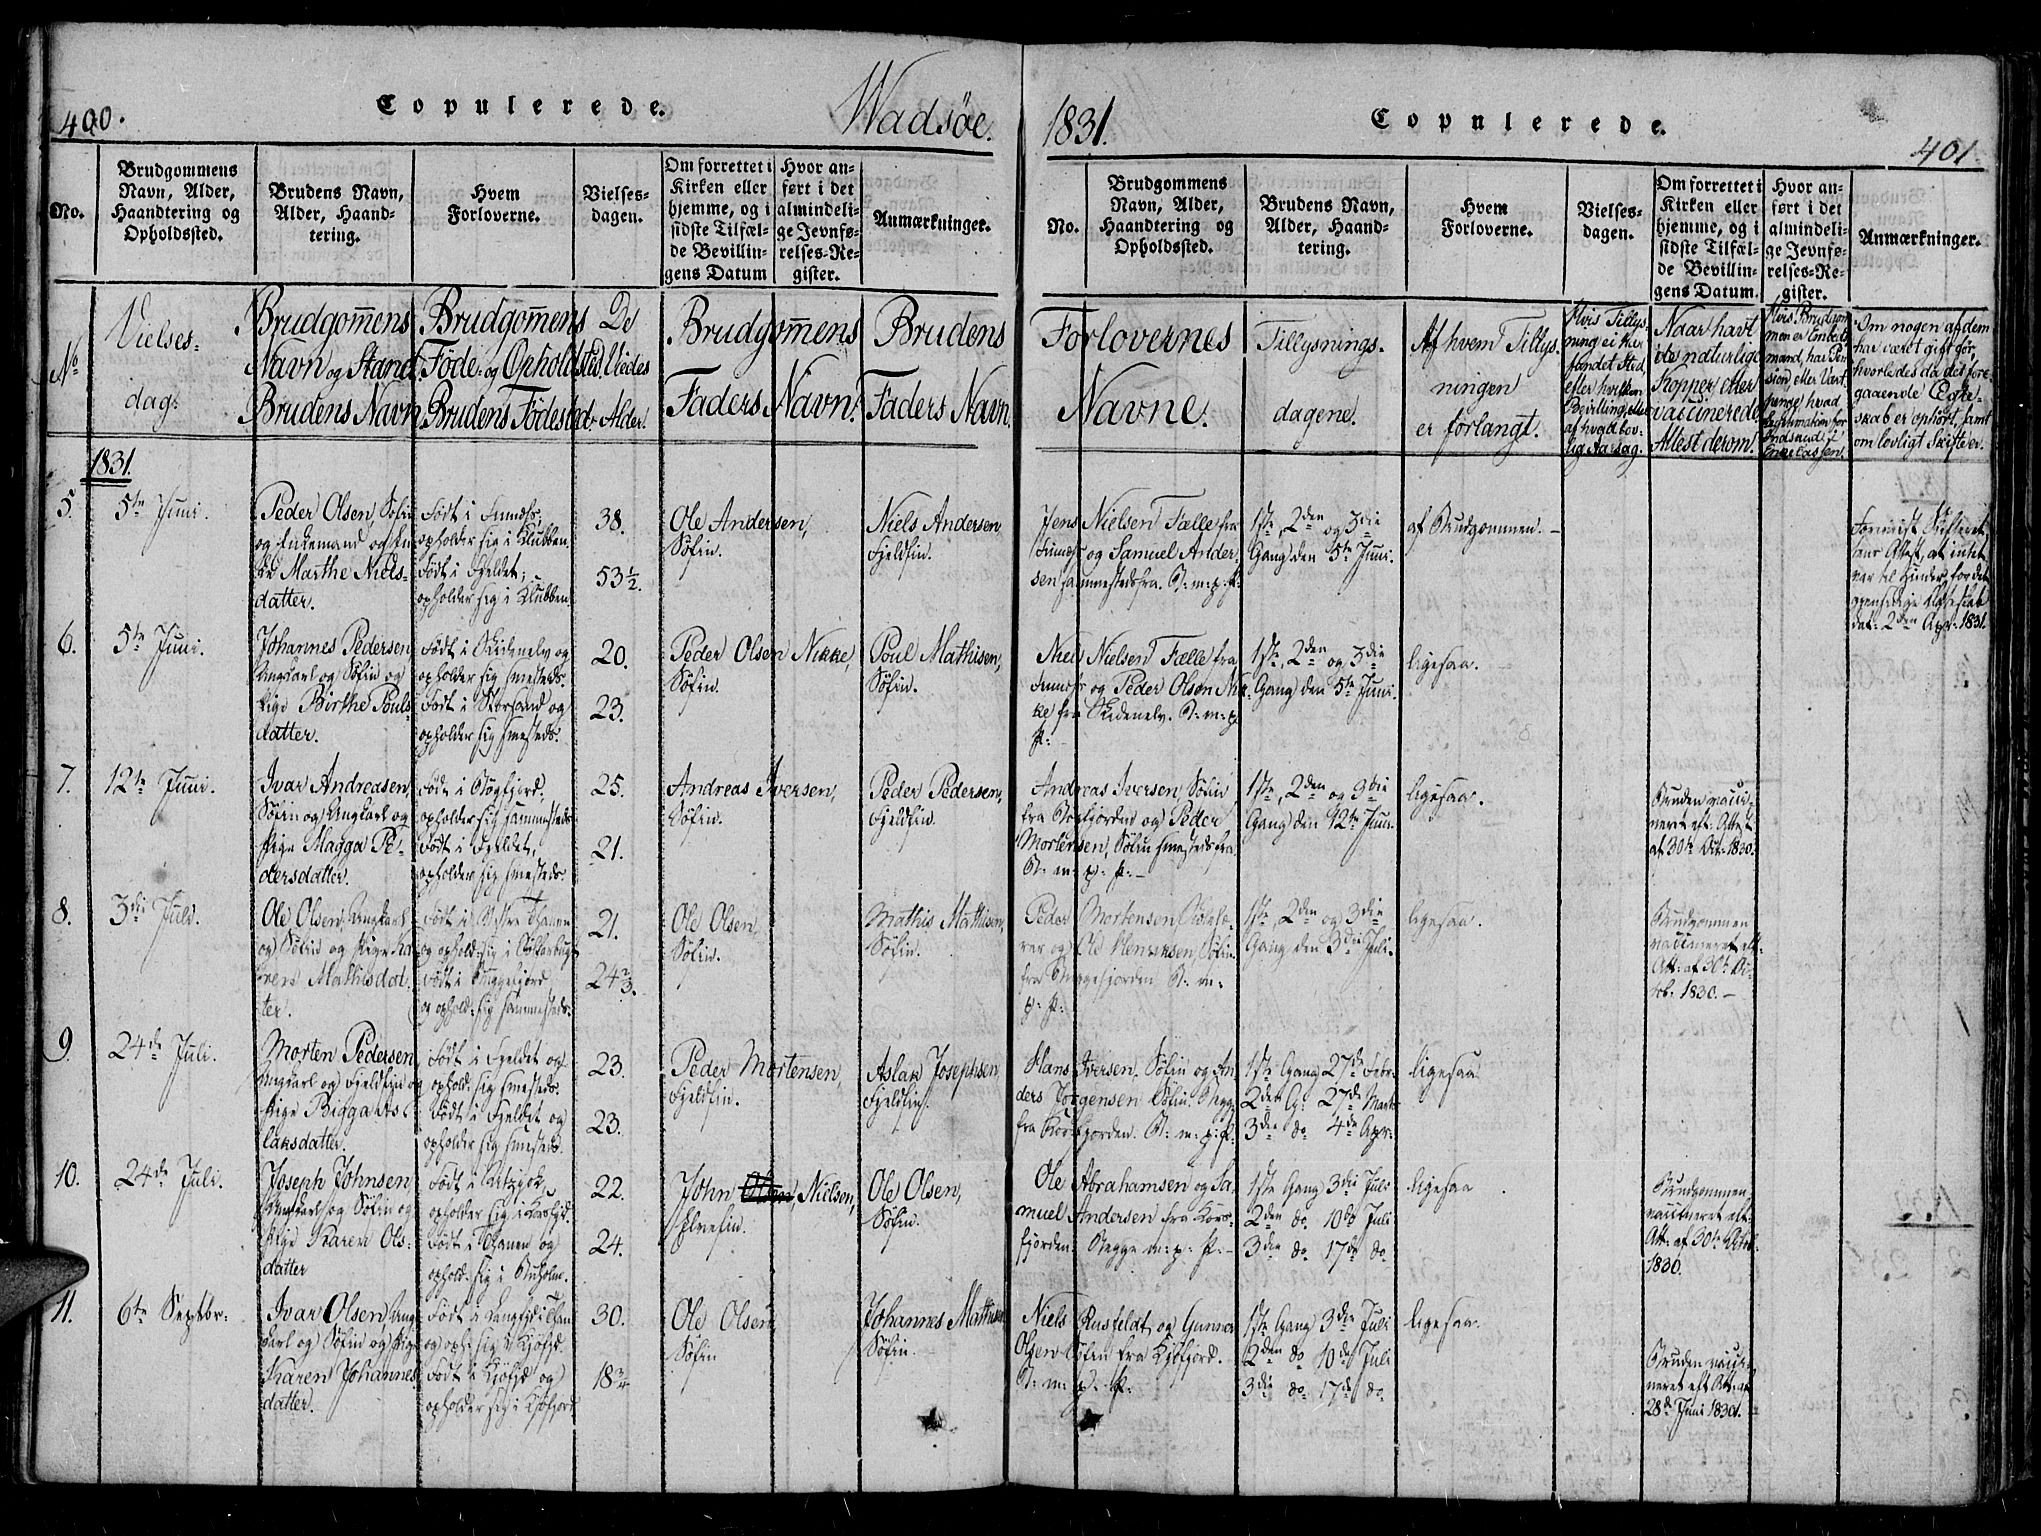 400.
Copulerede.
Wadsöe.
No.
Brudgommens
Navn, Alder,
Haandtering og
Opholdssted.
Brudens Navn,
Alder, Haand-
tering.
Hvem
Forloverne.
Vielses-
dagen.
Om forrettet i
Kirken eller
hjemme, og i
sidste Tilfæl-
de Bevillin-
gens Datum
Hvor an-
ført i det
almindeli-
ge Jevnfø-
relses-Re-
gister.
Anmærkninger.
No
Vielses-
dag.
Brudgom̅ens
Navn og Stand.
Brudens Navn
Brudgom̅ens
Føde- og Opholdsted.
Brudens Fødested
De
Viedes
Alder.
Brudgom̅ens
Faders Navn.
Brudens
Faders Navn.
1831.
5.
5te Juni.
Peder Olsen, Søfin
og Enkemand og En-
ke Marthe Niels-
datter.
Født i
opholder sig i Klubben.
Født i Fjeldet;
opholder sig i Klubben.
38.
53½.
Ole Andersen,
Søfin.
Niels Andersen,
Fjeldfin.
6.
5te Juni.
Johannes Pedersen,
Ungkarl og Søfin og
Pige Birthe Pouls-
datter.
Født i Skidenelv og
opholder sig smesteds.
Født i Storsand og
opholder sig smesteds.
20.
23.
Peder Olsen Nikke,
Søfin.
Poul Mathisen,
Søfin.
7.
12te Juni.
Ivar Andreasen,
Søfin og Ungkarl og
Pige Magga Pe-
dersdatter.
Født i Bogfjord;
opholder sig sammesteds.
Født i Fjeldet,
opholder sig smesteds.
25.
21.
Andreas Iversen,
Søfin.
Peder Pedersen,
Fjeldfin.
8.
3die Juli.
Ole Olsen, Ungkarl
og Søfin og Pige Ka-
ren Mathisdat-
ter.
Født i
og ophold: sig i
Født i Buggefjord,
og ophold: sig sammesteds.
21.
24¾.
Ole Olsen,
Søfin.
Mathis Mathisen,
Søfin.
9.
24de Juli.
Morten Pedersen,
Ungkarl og Fjeldfin og
Pige Bigga As-
laksdatter.
Født i Fjeldet og
ophold: sig smesteds.
Født i Fjeldet og
opholder sig smesteds.
23.
23.
Peder Mortensen,
Fjeldfin.
Aslak Josephsen,
Fjeldfin.
10.
24de Juli.
Joseph Johnsen,
Ungkarl og Søfin og
Pige Karen Ols-
datter
Født i
opholder sig i Korsfjd.
Født i Thanen og
ophold: sig i
22.
24.
John Olsen, Nielsen,
Elvefin.
Ole Olsen,
Søfin.
11.
6te Septbr:
Ivar Olsen, Ung-
karl og Søfin og Pige
Karen Johannes-
datter.
Født i Langfjd i Than
og oph: sig i Kjøfjd.
Født i Kjøfjd og
opholder sig i Kjøfjord
30.
18¾
Ole Olsen
Søfin
Johannes Mathisen
Søfin.
1831.
Copulerede.
401.
No.
Brudgommens
Navn, Alder,
Haandtering og
Opholdssted.
Brudens Navn,
Alder, Haand-
tering.
Hvem
Forloverne.
Vielses-
dagen.
Om forrettet i
Kirken eller
hjemme, og i
sidste Tilfæl-
de Bevillin-
gens Datum.
Hvor an-
ført i det
almindeli-
ge Jevnfø-
relses-Re-
gister.
Anmærkninger.
Forlovernes
Navne.
Tillysnings-
dagene.
Af hvem Tillys-
ningen
er forlangt.
Hvis Tillys-
ning ei har
fundet Sted,
efter hvilken
Bevilling, eller
af hvad lov-
lig Aarsag.
Naar havt
de naturlige
Kopper eller
vaccinerede.
Attest derom.
Hvis Brudgom-
men er Embeds-
mand, har Pen-
sion eller Vart-
penge, hvad
Legitimation for
Indskud i
Enkekassen.
Om nogen af dem
har været gift før,
hvorledes da det fore-
gaaende Ægte-
skab er ophørt, samt
om lovligt Skifte er.
Jens Nielsen Fælle fra
og Samuel Ander-
sen sammestedsfra. B: m: p: p:
1ste, 2den og 3die
Gang den 5te Juni.
af Brudgommen. -
Attest, at intet
var til Hinder for det
Ægteskab
dat: 2den Apr: 1831.
Niels Nielsen Fælle fra
og Peder Olsen Nik-
ke fra Skidenelv. B: m: p:
p:
1ste, 2den og 3die
Gang den 5te Juni.
ligesaa. -
Andreas Iversen, Søfin
fra Bogfjorden og Peder
Mortensen, Søfin smestedsfra.
B: m: p: p: -
1ste, 2den og 3die
Gang den 12te Juni.
ligesaa.
Bruden vacci-
neret eft: Attest
af 30te Oct: 1830.
Peder Mortensen
rer og Ole Henriksen, Søfin
fra Buggefjorden B: m:
p: p:
1ste, 2den og 3die
Gang den 3die Juli.
ligesaa.
Brudgommen
vaccineret eft:
Att: af 30te Oc-
tob: 1830. -
Hans Iversen, Søfin og An-
ders Jørgensen Søfin. Begge
fra Korsfjorden. B: m: p: p:
1ste Gang 27de Febr:
2den G: 27de Marts
3die do 4de Apr:
ligesaa.
Ole Abrahamsen og Sa-
muel Andersen fra Kors-
fjorden. Begge m: p: p: -
1ste Gang 3die Juli
2den do 10de Juli
3die do 17de do
ligesaa
Brudgommen
vaccineret eft:
Att: af 30te Octob:
1830.
Niels Rusfeldt og Gunnar
Olsen Søfin fra Kjøfjord.
B: m: p: p:
1ste Gang 3die Juli
2den do 10de Juli
3die do 17de do
ligesaa.
Bruden vacci-
neret eft Att: af
28de Juni 1830.